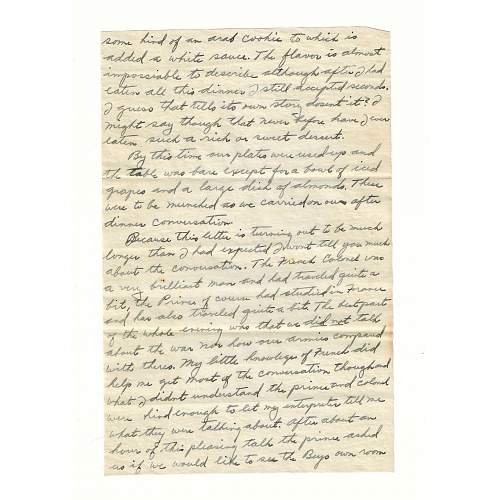 some kind of an arab cookie to which is
added a white sauce. The flavor is almost
impossiable to describe although after I had
eaten all this dinner I still accepted seconds.
I guess that tells its own story dosent it? I
might say though that never before have I ever
eaten such a rich or sweet dessert.
By this time our plates were used up and
the table was bare except for a bowl of iced
grapes and a large dish of almonds. These
were to be munched as we carried on our after
dinner conversation
Because this letter is turning out to be much
longer than I had expected I wont tell you much
about the conversation. The French Colonel was
a very brilliant man and had traveled quite a
bit, the Prince of course had studied in France
and has also traveled quite a bit. The best part
of the whole evening was that we did not talk
about the war nor how our armies compared
with theres. My little knowledge of French did
help me get most of the conversation though and
what I didnt understand the prince and colonel
were kind enough to let my interpreter tell me
what they were talking about. After about an
hour of this pleasing talk the prince asked
us if we would like to see the Beys own room